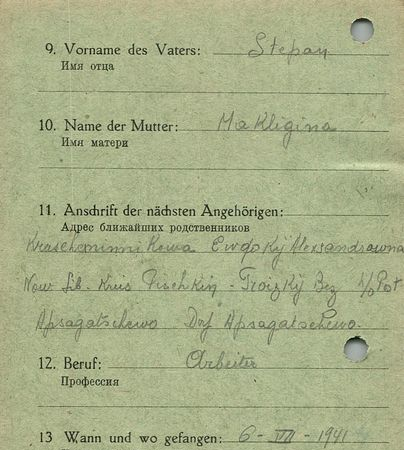 9. Vorname des Vaters: Stepan
Имя отца
10. Name der Mutter: Makligina
Имя матери
11. Anschrift der nächsten Angehörigen:
Адрес ближайших родственников
Krascheninnikowa Ewdokij Alexsandrowna
Now Sib. Kreis - Troizkij Bez Post
Apsagatschewo Drf Apsagatschewo.
12. Beruf: Arbeiter
Профессия
13 Wann und wo gefangen: 6 - VII - 1941